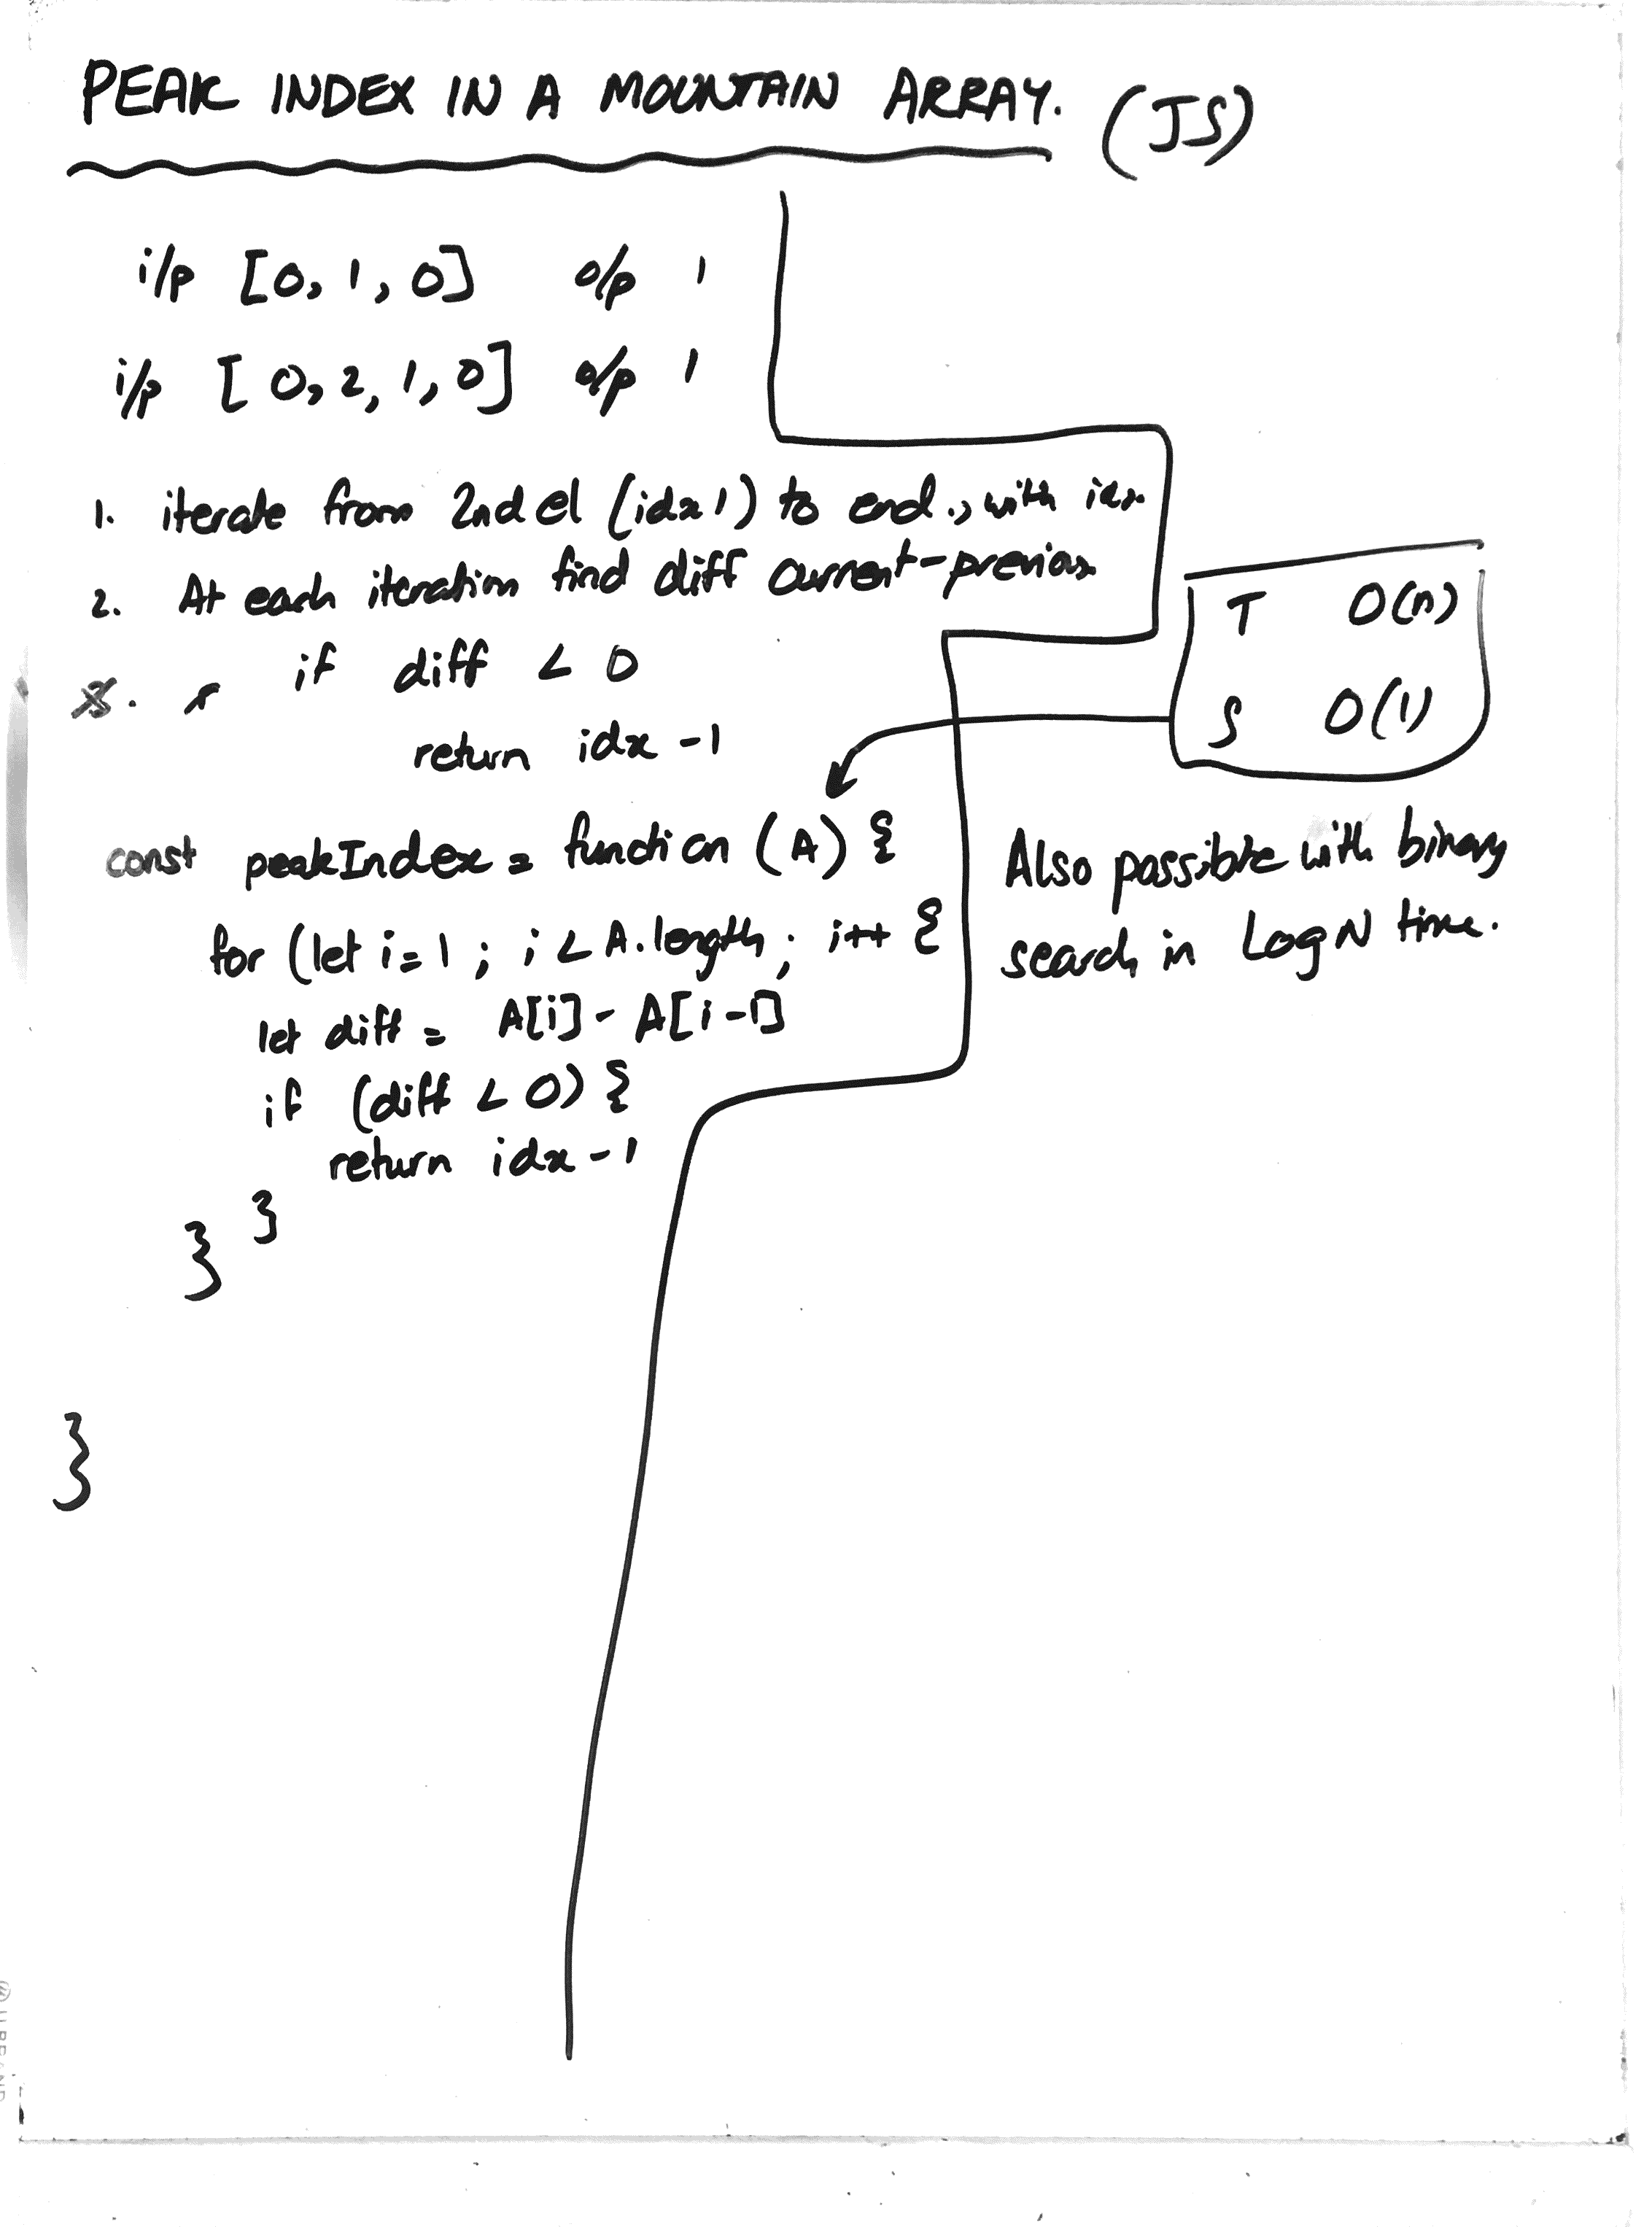 PEAK INDEX IN A MOUNTAIN ARRAY. (JS)
i/p [0, 1, 0] o/p 1
i/p [0, 2, 1, 0] o/p 1
1. iterate from 2nd el (idx 1) to end., with
2. At each iteration find diff current-previous
if diff < 0
return idx -1
T O(n)
S O(1)
const peakIndex = function (A) {
for (let i=1 ; i < A.length ; i++ {
let diff = A[i] - A[i-1]
if (diff < 0) {
return idx -1
}
}
}
Also possible with binary
search in Log N time.